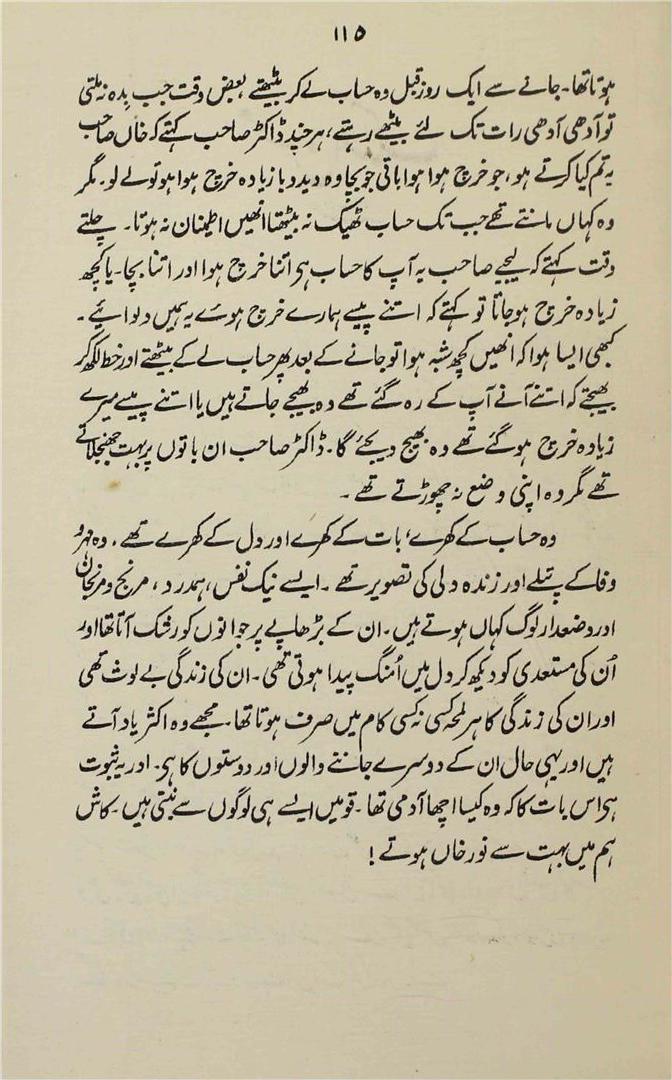 ۱۱۵
ہوتا تھا۔ جانے سے ایک روز قبل وہ حساب لے کر بیٹھتے بعض وقت جب بدہ نہ ملتی
تو آدھی آدھی رات تک لئے بیٹھے رہتے، ہر چند ڈاکٹر صاحب کہتے کہ خاں صاحب
یہ تم کیا کرتے ہو، جو خرچ ہوا ہوا باقی جو بچا وہ دیدیا زیادہ خرچ ہوا ہو تو لے لو۔ مگر
وہ کہاں مانتے تھے جب تک حساب ٹھیک نہ بیٹھتا انھیں اطمنان نہ ہوتا۔ چلتے
وقت کہتے کہ لیجیے صاحب یہ آپ کا حساب ہو اتنا خرچ ہوا اور اتنا بچا۔ یا کچھ
زیادہ خرچ ہو جاتا تو کہتے کہ اتنے پیسے ہمارے خرچ ہوئے یہ ہمیں دلوائیے۔
کبھی ایسا ہوا کہ انھیں کچھ شبہ ہوا تو جانے کے بعد پھر حساب لے کے بیٹھتے اور خط لکھ کر
بھیجتے کہ اتنے آنے آپ کے رہ گئے تھے وہ بھیجے جاتے ہیں یا اتنے پیسے میرے
زیادہ خرچ ہو گئے تھے وہ بھیج دیجئے گا۔ ڈاکٹر صاحب ان باتوں پر بہت جھنجلاتے
تھے مگر وہ اپنی وضع نہ چھوڑتے تھے۔
وہ حساب کے کھرے، بات کے کھرے اور دل کے کھرے تھے، وہ مہرو
وفا کے پتلے اور زندہ دلی کی تصویر تھے۔ ایسے نیک نفس، ہمدرد، مرنج و مرنجان
اور وضعدار لوگ کہاں ہوتے ہیں۔ ان کے بڑھاپے پر جوانوں کو رشک آتا تھا اور
اُن کی مستعدی کو دیکھ کر دل میں اُمنگ پیدا ہوتی تھی۔ ان کی زندگی بے لوث تھی
اور ان کی زندگی کا ہر لمحہ کسی نہ کسی کام میں صرف ہوتا تھا۔ مجھے وہ اکثر یاد آتے
ہیں اور یہی حال ان کے دوسرے جاننے والوں اور دوستوں کا ہو۔ اور یہ ثبوت
ہو اس بات کا کہ وہ کیسا اچھا آدمی تھا۔ قومیں ایسے ہی لوگوں سے بنتی ہیں۔ کاش
ہم میں بہت سے نور خاں ہوتے!